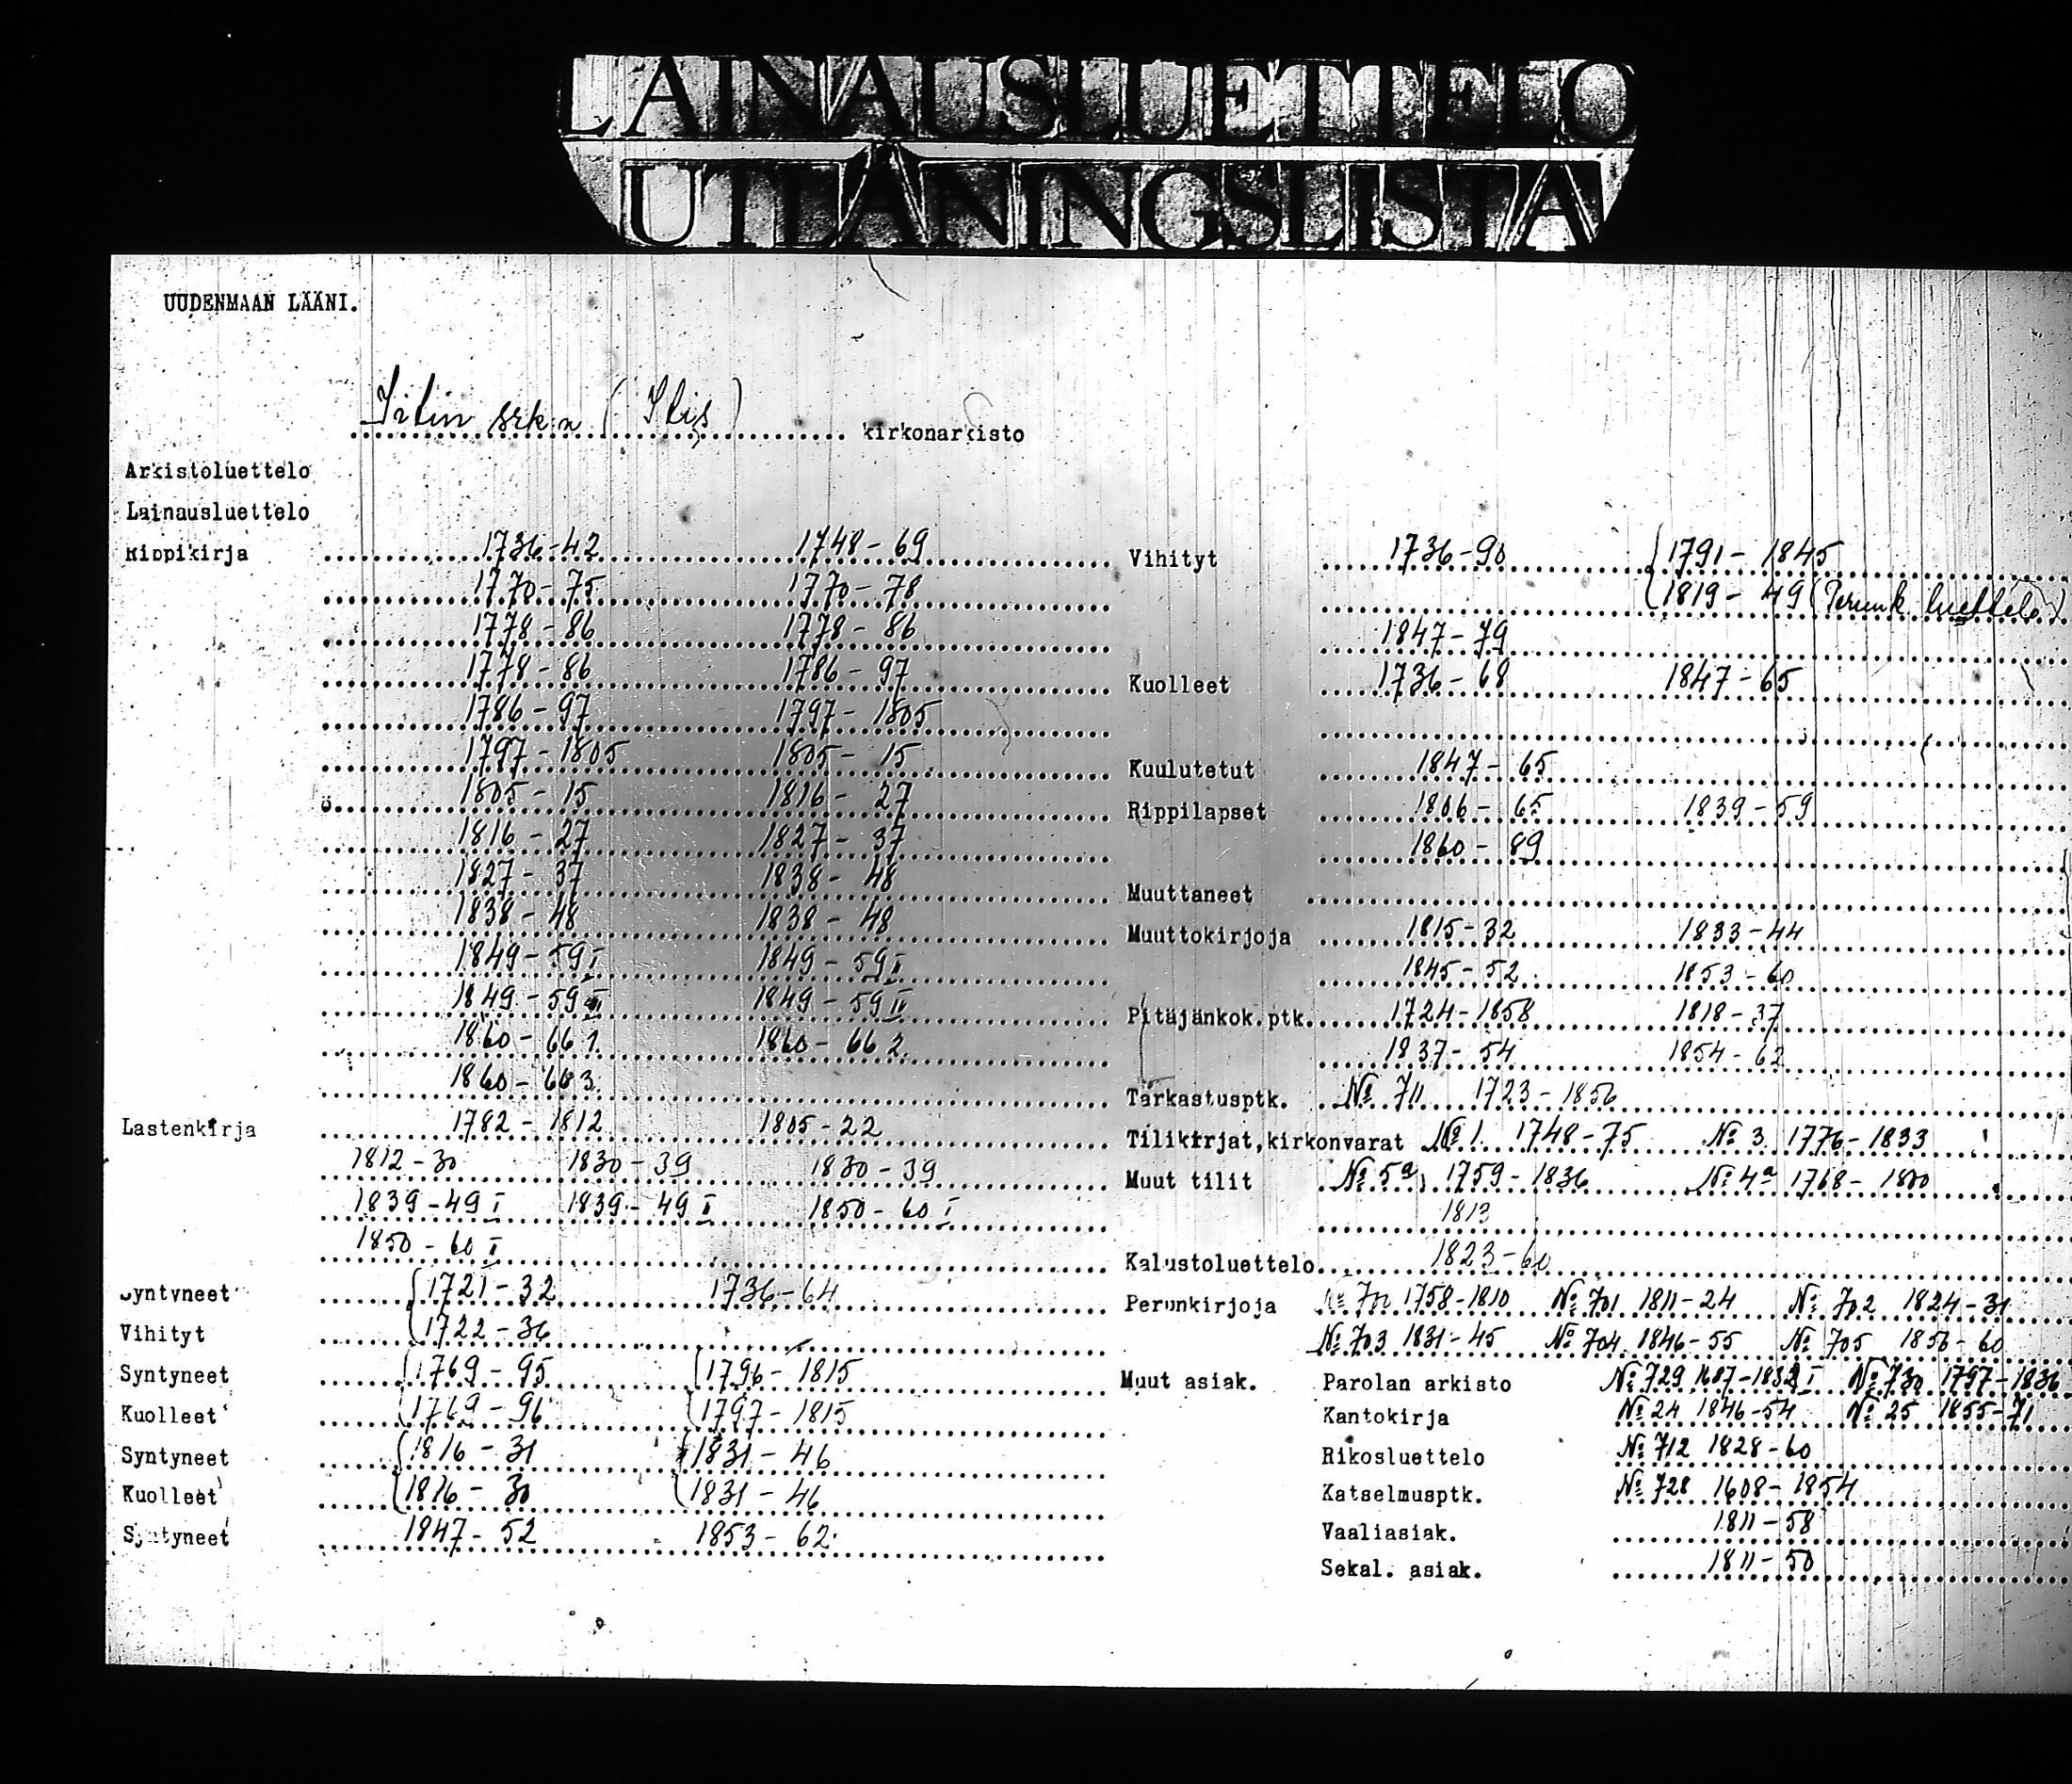 LAINAUSLUETTELO
UTLÅNINGSLISTA
UUDENMAAN LÄÄNI.
Iitin srk:n (Itis) kirkonarkisto
Arkistoluettelo
Lainausluettelo
Rippikirja 1736-42 1748-69
1770-75 1770-78
1778-86 1778-86
1778-86 1786-97
1786-97 1797-1805
1797-1805 1805-15
1805-15 1816-27
1816-27 1827-37
1827-37 1838-48
1838-48 1838-48
1849-59 I 1849-59 II
1849-59 III 1849-59 IV
1860-66 1. 1860-66 2.
1860-66 3.
Lastenkirja 1782-1812 1805-22
1812-30 1830-39 1830-39
1839-49 I 1839-49 II 1850-60 I
1850-60 II
Syntyneet 1721-32 1736-64
Vihityt 1722-36
Syntyneet 1769-95 1796-1815
Kuolleet 1769-96 1797-1815
Syntyneet 1816-31 1831-46
Kuolleet 1816-30 1831-46
Syntyneet 1847-52 1853-62
Vihityt 1736-90 1791-1845
1819-49 (Perunk. luettelo)
1847-79
Kuolleet 1736-68 1847-65
Kuulutetut 1847-65
Rippilapset 1806-65 1839-59
1860-89
Muuttaneet
Muuttokirjoja 1815-32 1833-44
1845-52 1853-60
Pitäjänkok.ptk. 1724-1858 1818-37
1837-54 1854-62
Tarkastusptk. No 711 1723-1856
Tilikirjat,kirkonvarat No 1 1748-75 No 3 1776-1833
Muut tilit No 5a 1759-1836 No 4a 1768-1800
1813
Kalustoluettelo 1823-60
Perunkirjoja No 700 1758-1810 No 701 1811-24 No 702 1824-31
No 703 1831-45 No 704 1846-55 No 705 1856-60
Muut asiak. Parolan arkisto No 729 1687-1832 I No 730 1797-1836
Kantokirja No 24 1846-54 No 25 1855-71
Rikosluettelo No 712 1828-60
Katselmusptk. No 728 1608-1854
Vaaliasiak. 1811-58
Sekal. asiak. 1811-50